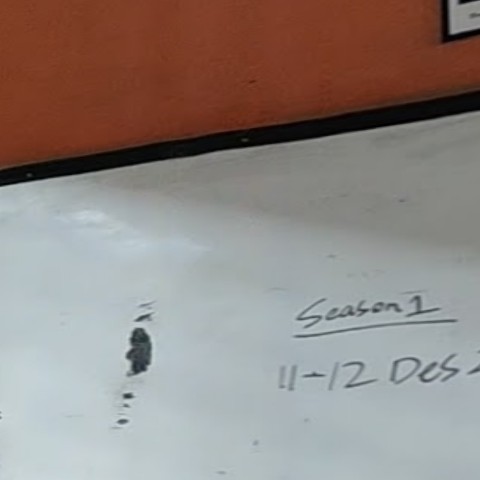 Season 1
11-12 Des